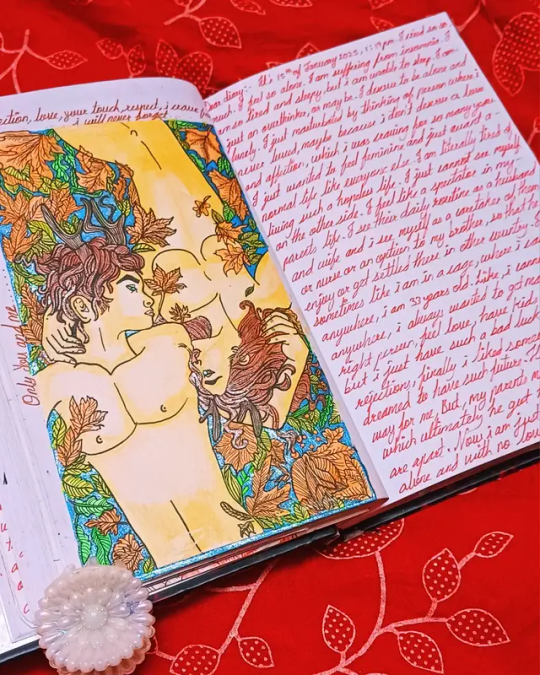 ection, love, your touch, respect, i crave
i will never forget
Only You and me
Dear diary:- It's 15th of January 2025, 1:19 pm. I tried so so
much. I feel so alone. I am suffering from insomnia. I
am so tired and sleepy, but i am unable to sleep. I am
just an overthinker, or may be I deserve to be alone and
lonely. I just masturbated by thinking of person whom i
never loved, maybe because i don't deserve a love
and affection, which i was craving for so many years.
I just wanted to feel feminine and just wanted a
normal life like everyone else. I am literally tired of
living such a hopeless life. I just cannot see myself
on the other side. I feel like a spectator in my
parents life. I see their daily routine as a husband
and wife and i see myself as a caretaker of them
or nurse or an option to my brother, so that he
enjoy or get settled there in other country. I
sometimes like i am in a cage, where i can
anywhere, i am 33 years old. Like, i cann
anywhere, i always wanted to get ma
right person, feel love, have kids
but i just have such a bad luck
rejections, finally i liked some
dreamed to have such future. 
way for me. But, my parents m
which ultimately he got
are apart. Now i am just
alone and with no lov